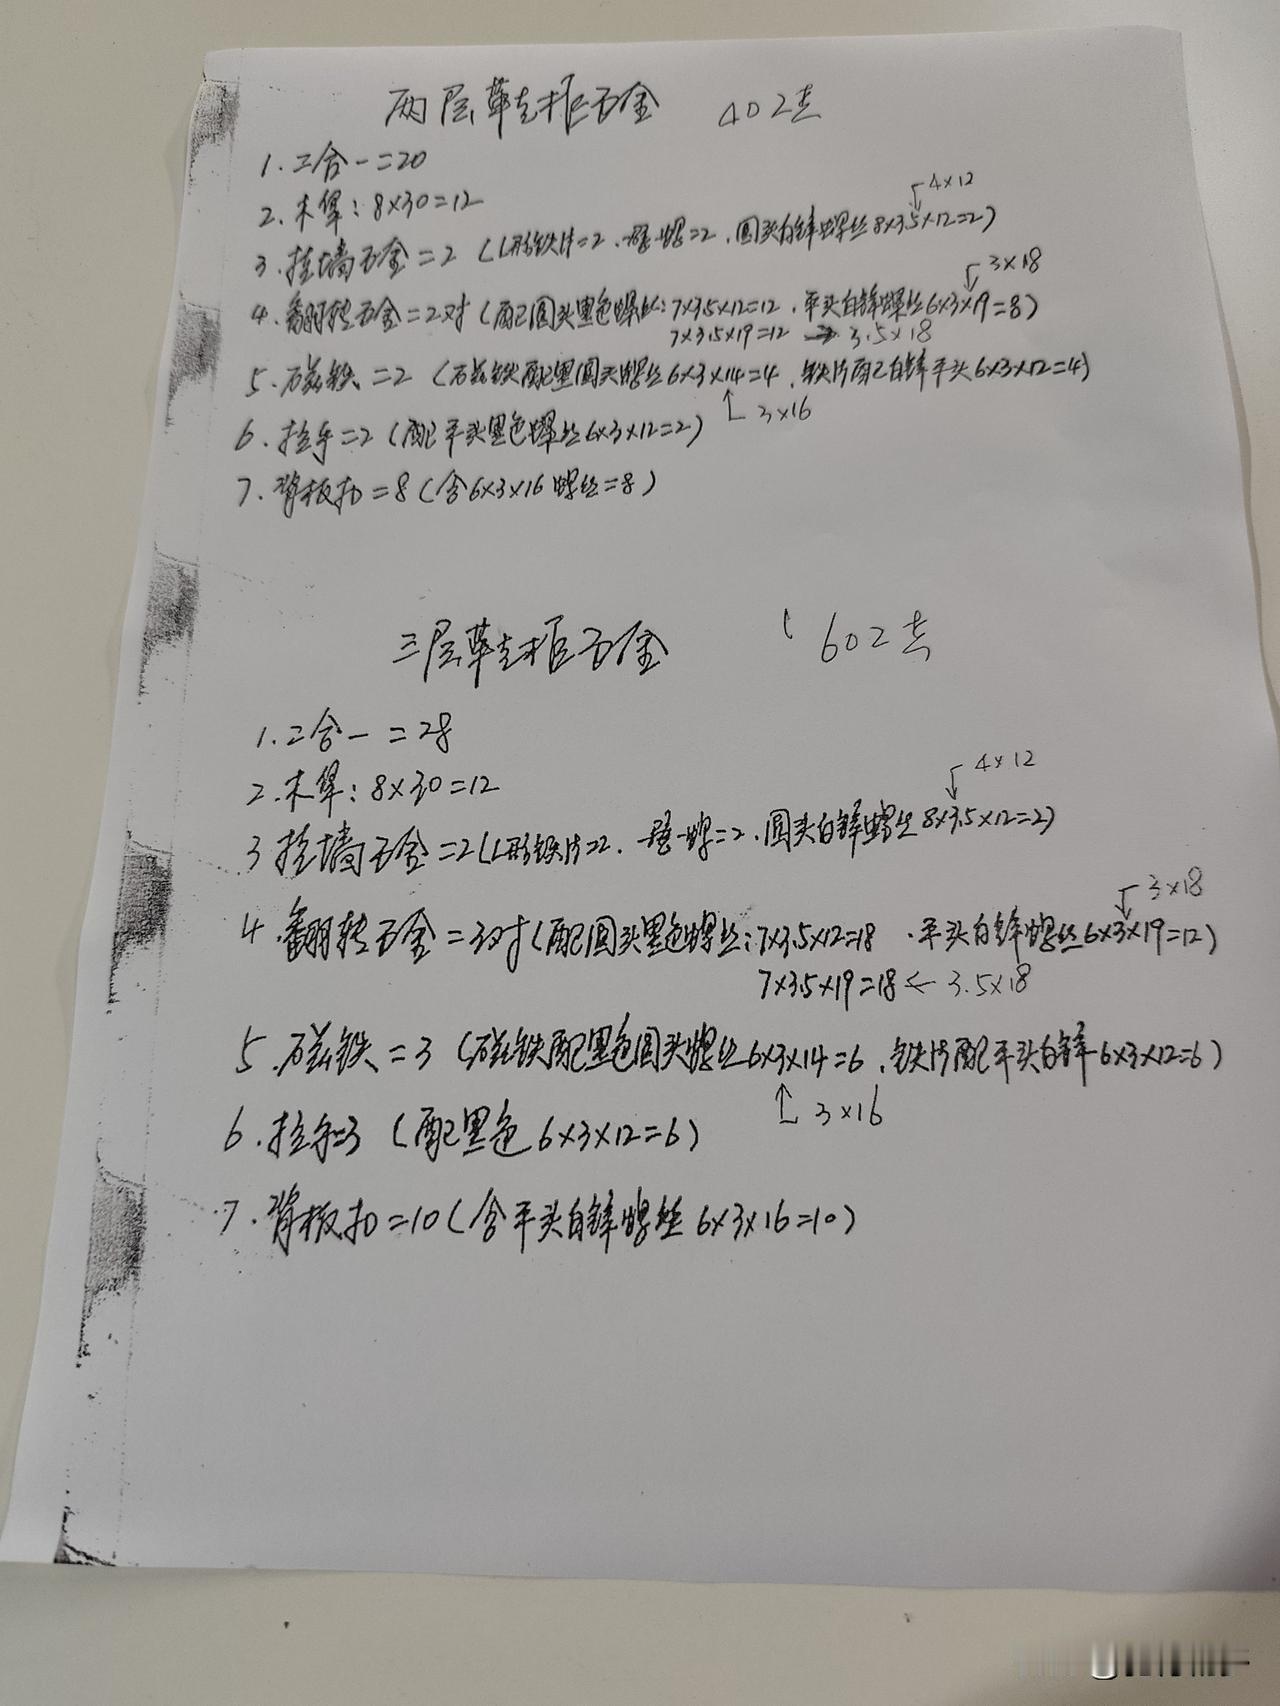 两层鞋柜五金 402套
1.二合一=20
2.木榫:8×30=12
4×12
3.挂墙五金=2(L形铁片=2、膨螺=2、圆头白锌螺丝8×3.5×12=2)
3×18
4.翻转五金=2对(配圆头黑色螺丝:7×3.5×12=12、平头白锌螺丝6×3×19=8)
7×3.5×19=12 → 3.5×18
5.磁铁=2(磁铁配黑圆头螺丝6×3×14=4、铁片配白锌平头6×3×12=4)
3×16
6.拉手=2(配平头黑色螺丝6×3×12=2)
7.背板扣=8(含6×3×16螺丝=8)
三层鞋柜五金 602套
1.二合一=28
2.木榫:8×30=12
4×12
3挂墙五金=2(L形铁片=2、膨螺=2、圆头白锌螺丝8×3.5×12=2)
3×18
4.翻转五金=3对(配圆头黑色螺丝:7×3.5×12=18、平头白锌螺丝6×3×19=12)
7×3.5×19=18←3.5×18
5.磁铁=3(磁铁配黑色圆头螺丝6×3×14=6、铁片配平头白锌6×3×12=6)
3×16
6.拉手=3(配黑色6×3×12=6)
7.背板扣=10(含平头白锌螺丝6×3×16=10)